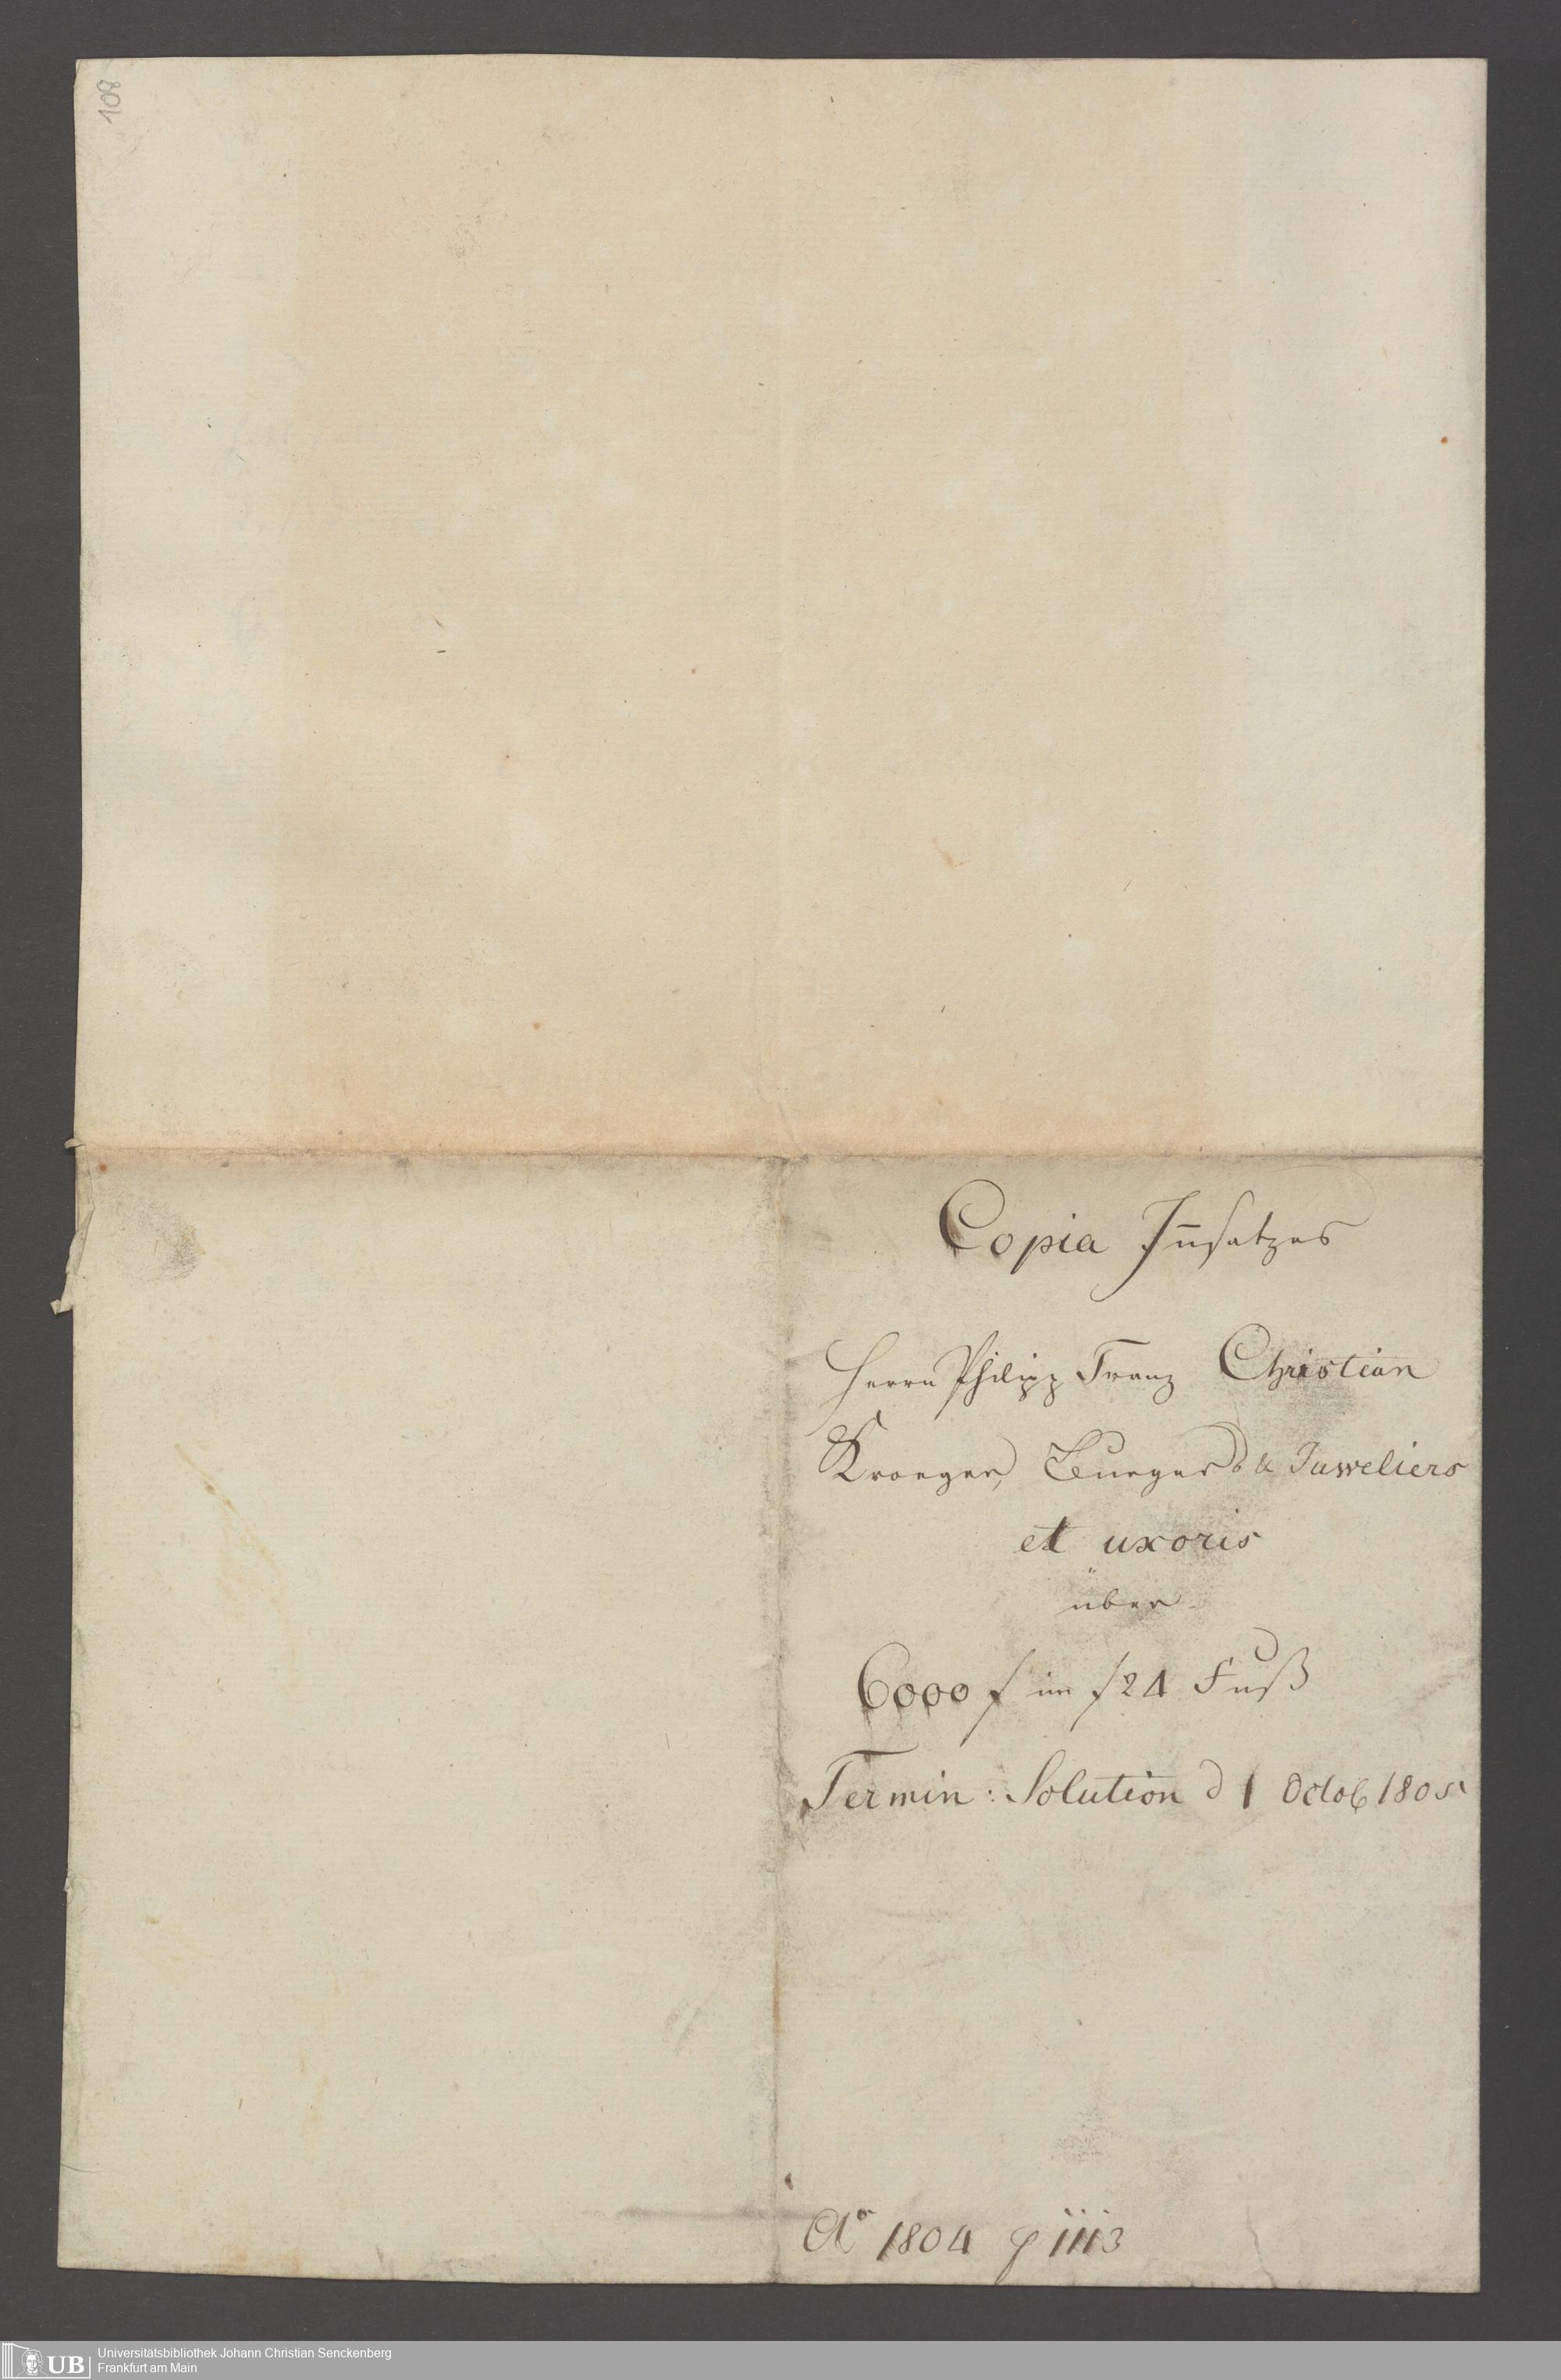 108
Copia Iñsatzes
Herrn Philipp Franz Christian
Kroeger, Burgers & Juweliers
et uxoris
über
6000 f im f 24 Fuß
Termin: Solution d 1 Octob 1805
Ao 1804 p 1113
UB
Universitätsbibliothek Johann Christian Senckenberg
Frankfurt am Main